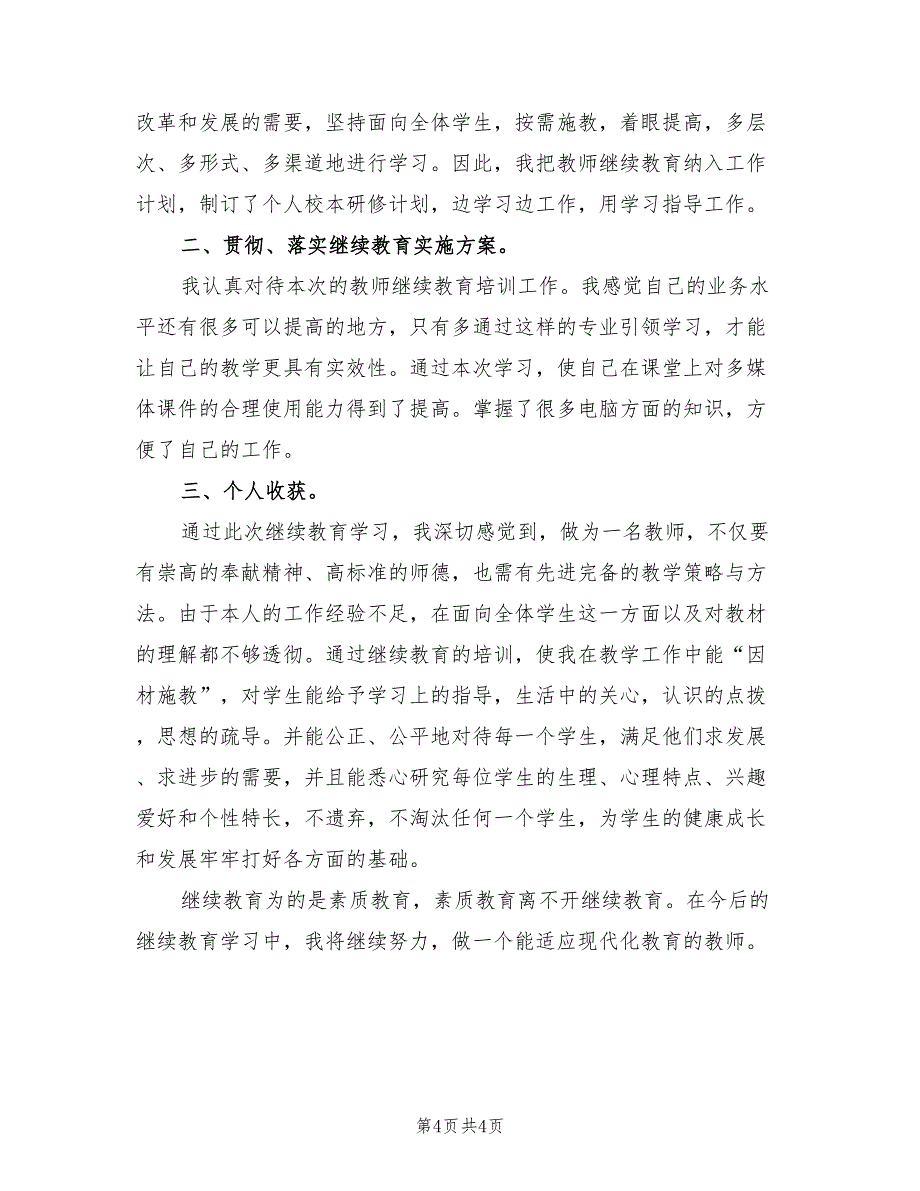 改革和发展的需要，坚持面向全体学生，按需施教，着眼提高，多层
次、多形式、多渠道地进行学习。因此，我把教师继续教育纳入工作
计划，制订了个人校本研修计划，边学习边工作，用学习指导工作。
二、贯彻、落实继续教育实施方案。
我认真对待本次的教师继续教育培训工作。我感觉自己的业务水
平还有很多可以提高的地方，只有多通过这样的专业引领学习，才能
让自己的教学更具有实效性。通过本次学习，使自己在课堂上对多媒
体课件的合理使用能力得到了提高。掌握了很多电脑方面的知识，方
便了自己的工作。
三、个人收获。
通过此次继续教育学习，我深切感觉到，做为一名教师，不仅要
有崇高的奉献精神、高标准的师德，也需有先进完备的教学策略与方
法。由于本人的工作经验不足，在面向全体学生这一方面以及对教材
的理解都不够透彻。通过继续教育的培训，使我在教学工作中能“因
材施教”，对学生能给予学习上的指导，生活中的关心，认识的点拨
，思想的疏导。并能公正、公平地对待每一个学生，满足他们求发展
、求进步的需要，并且能悉心研究每位学生的生理、心理特点、兴趣
爱好和个性特长，不遗弃，不淘汰任何一个学生，为学生的健康成长
和发展牢牢打好各方面的基础。
继续教育为的是素质教育，素质教育离不开继续教育。在今后的
继续教育学习中，我将继续努力，做一个能适应现代化教育的教师。
第4页 共4页